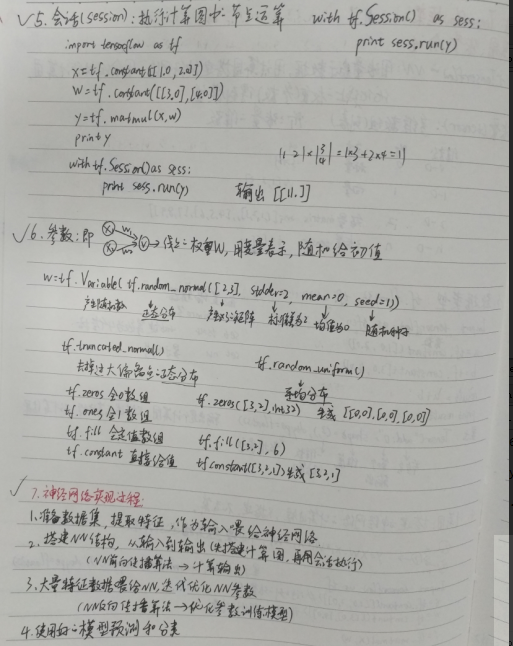 √5.会话(session):执行计算图中节点运算 with tf.Session() as sess:
print sess.run(y)
import tensorflow as tf
x=tf.constant([[1.0,2.0]])
w=tf.constant([[3.0],[4.0]])
y=tf.matmul(x,w)
print y
with tf.Session() as sess:
print sess.run(y) 输出 [[11.]]
|1 2|×|3 4|=1×3+2×4=11
√6.参数:即 线上权重W,用变量表示,随机给初值
w=tf.Variable(tf.random_normal([2,3], stddev=2, mean=0, seed=1))
正态分布 产生2×3矩阵 标准差为2 均值为0 随机种子
tf.truncated_normal() tf.random_uniform()
去掉过大偏离点正态分布 平均分布
tf.zeros 全0数组 tf.zeros([3,2],int32) 生成 [[0,0],[0,0],[0,0]]
tf.ones 全1数组
tf.fill 全定值数组 tf.fill([3,2],6)
tf.constant 直接给值 tf.constant([3,2,1])生成 [3,2,1]
√7.神经网络实现过程:
1.准备数据集,提取特征,作为输入喂给神经网络
2.搭建NN结构,从输入到输出(先搭建计算图,再用会话执行)
(NN前向传播算法→计算输出)
3.大量特征数据喂给NN,迭代优化NN参数
(NN反向传播算法→优化参数训练模型)
4.使用好的模型预测和分类